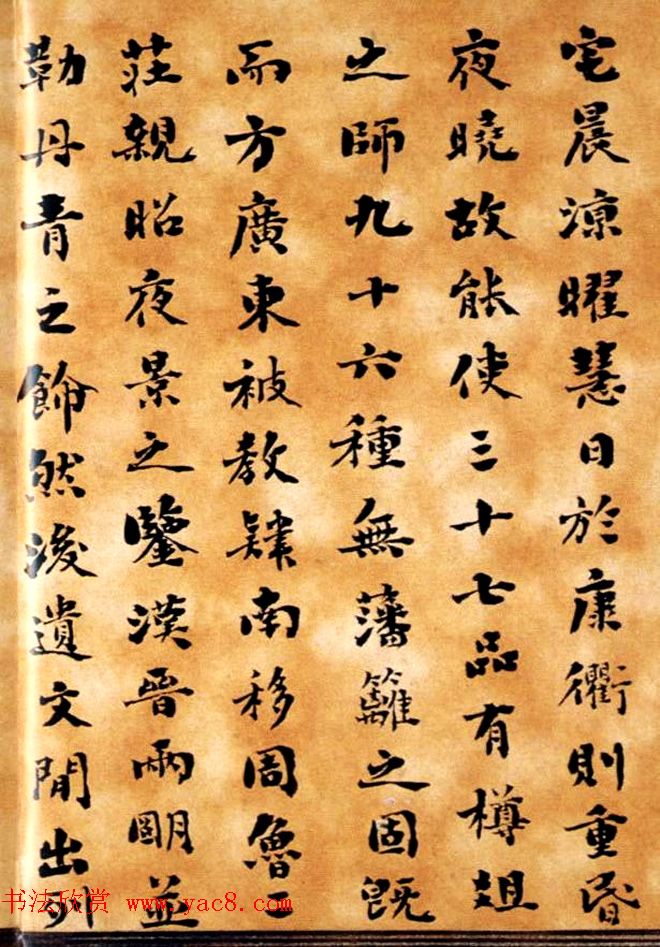 宅晨涼曜慧日於康衢則重昏
夜曉故能使三十七品有樽俎
之師九十六種無藩籬之固既
而方廣東被教肄南移周魯二
莊親昭夜景之鑒漢晉兩朙並
勒丹青之飾然後遺文閒出列
书法欣赏 www.yac8.com